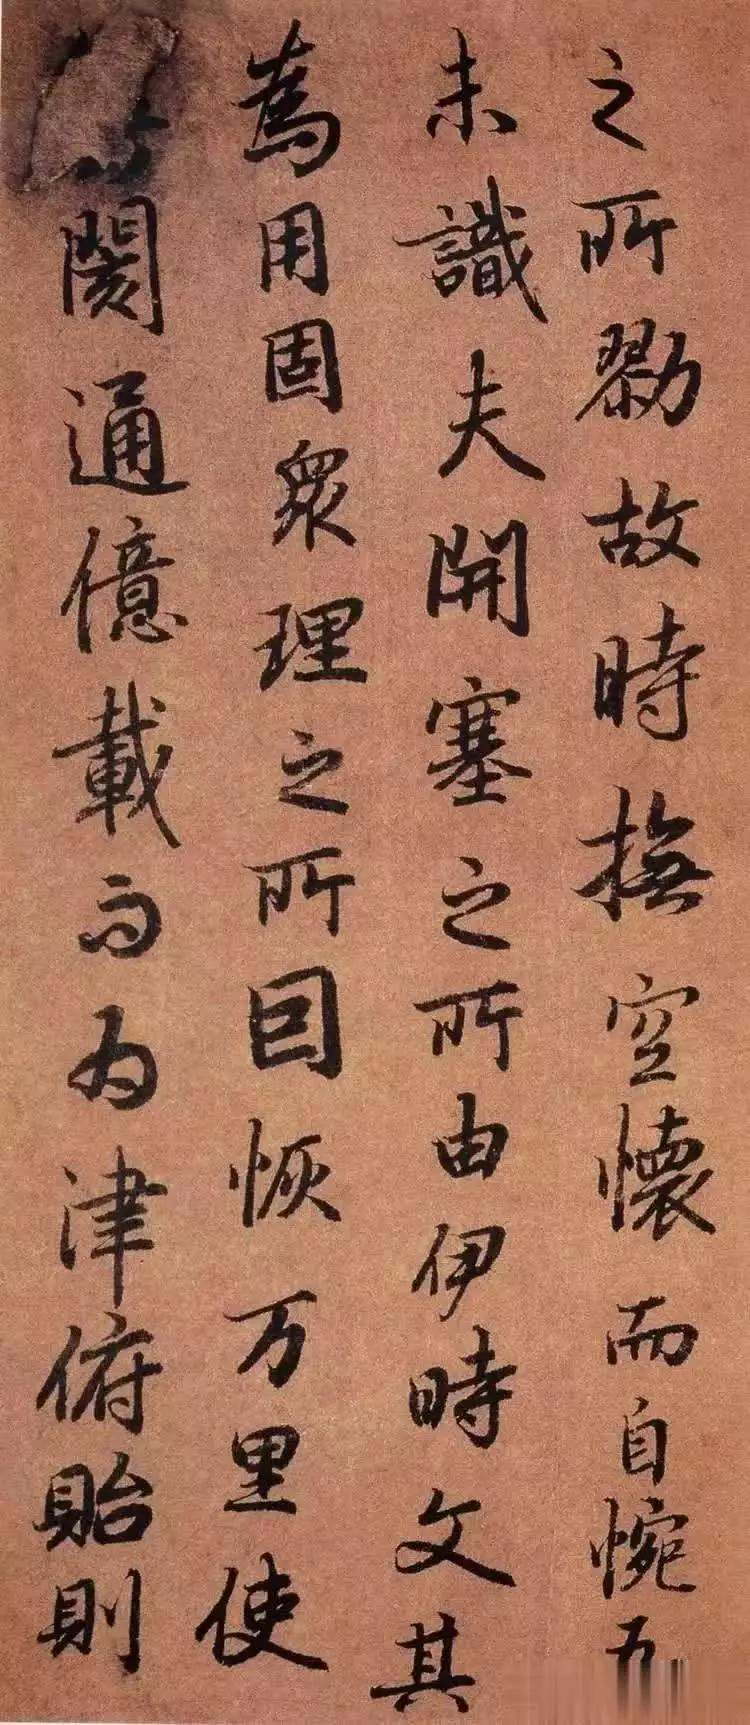 之所勠故時撫空懷而自惋
未識夫開塞之所由伊時文其
為用固衆理之所囙恢万里使
閡通億載而为津俯貽則